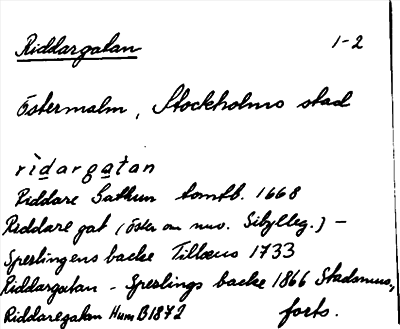 Riddargatan 1-2
Östermalm, Stockholms stad
rìdargatan
Riddare Gathun tomtb. 1668
Riddare gat (öster om nuv. Sibylleg.) –
Sperlingens backe Tillæus 1733
Riddargatan - Sperlings backe 1866 Stadsmus,
Riddaregatan Hum B 1872 forts.